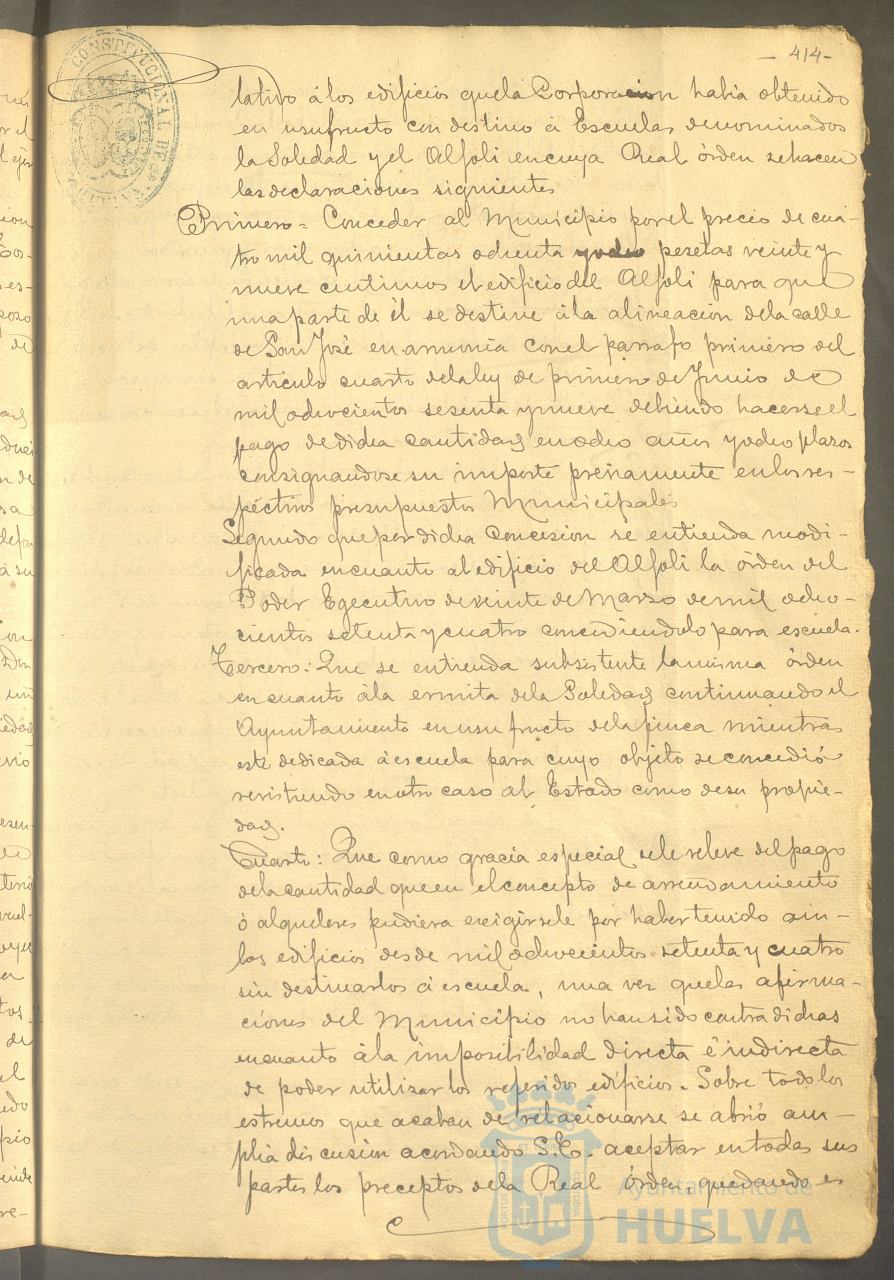 - 414-
CONSTITUCIONAL DE
lativo á los edificios que la Corporacion habia obtenido
en usufructo con destino á Escuelas denominados
la Soledad y el Alfoli en cuya Real órden se hacen
las declaraciones siguientes
Primero = Conceder al Municipio por el precio de cua-
tro mil quinientas ochenta y ocho pesetas veinte y
nueve centimos el edificio del Alfoli para que
una parte de él se destine á la alineacion de la calle
de San José en armonia con el parrafo primero del
articulo cuarto de la ley de primero de Junio de
mil ochocientos sesenta y nueve debiendo hacerse el
pago de dicha cantidad en ocho años y ocho plazos
consignandose su importe preriamente en los res-
pectivos presupuestos Municipales
Segundo que por dicha Concesion se entienda modi-
ficada en cuanto al edificio del Alfoli la órden del
Poder Egecutivo de veinte de Marzo de mil ocho-
cientos setenta y cuatro concediendolo para escuela.
Tercero: Que se entienda subsistente la misma órden
en cuanto á la ermita de la Soledad continuando el
Ayuntamiento en usufructo de la finca mientras
esté dedicada á escuela para cuyo objeto se concedió
revirtiendo en otro caso al Estado como de su propie-
dad.
Cuarto: Que como gracia especial se le releve del pago
de la cantidad que en el concepto de arrendamiento
ó alquileres pudiera exigirsele por haber tenido am-
bos edificios desde mil ochocientos setenta y cuatro
sin destinarlos á escuela, una vez que las afirma-
ciones del Municipio no han sido contradichas
en cuanto á la imposibilidad directa é indirecta
de poder utilizar los referidos edificios. Sobre todo los
estremos que acaban de relacionarse se abrió am-
plia discusion acordando S.E. aceptar en todas sus
partes los preceptos de la Real órden, quedando es
Ayuntamiento de
HUELVA